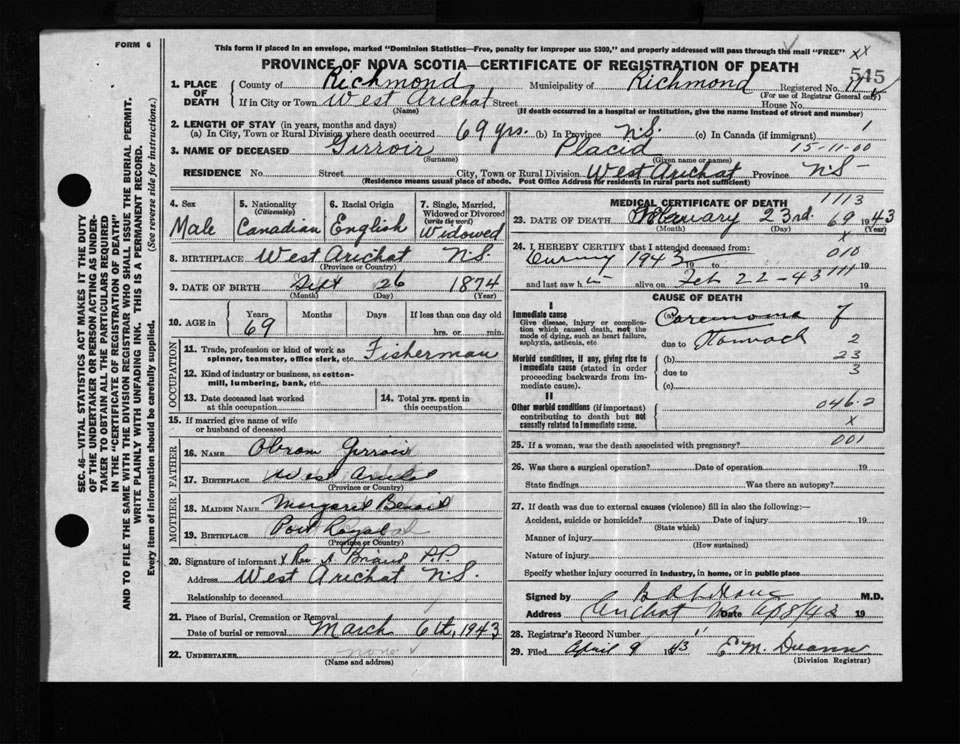 FORM 6
This form if placed in an envelope, marked "Dominion Statistics—Free, penalty for improper use $300," and properly addressed will pass through the mail "FREE"
xx
PROVINCE OF NOVA SCOTIA—CERTIFICATE OF REGISTRATION OF DEATH
545
1. PLACE OF DEATH County of Richmond Municipality of Richmond Registered No.
(For use of Registrar General only)
If in City or Town West Arichat Street House No.
(Name) (If death occurred in a hospital or institution, give the name instead of street and number)
2. LENGTH OF STAY (in years, months and days)
(a) In City, Town or Rural Division where death occurred 69 yrs. (b) In Province N.S. (c) In Canada (if immigrant) 1
3. NAME OF DECEASED Girroir Placid 15-11-00
(Surname) (Given name or names)
RESIDENCE No. Street City, Town or Rural Division West Arichat Province N.S
(Residence means usual place of abode. Post Office Address for residents in rural parts not sufficient)
4. Sex Male
5. Nationality (Citizenship) Canadian
6. Racial Origin English
7. Single, Married, Widowed or Divorced (write the word) Widowed
8. BIRTHPLACE West Arichat N.S.
(Province or Country)
9. DATE OF BIRTH Sept 26 1874
(Month) (Day) (Year)
10. AGE in Years 69 Months Days If less than one day old
hrs. or min.
OCCUPATION
11. Trade, profession or kind of work as spinner, teamster, office clerk, etc. Fisherman
12. Kind of industry or business, as cotton-mill, lumbering, bank, etc.
13. Date deceased last worked at this occupation
14. Total yrs. spent in this occupation
15. If married give name of wife or husband of deceased
FATHER
16. Name Girroir
17. Birthplace West
(Province or Country)
MOTHER
18. MAIDEN NAME Margaret
19. BIRTHPLACE Port Royal
(Province or Country)
20. Signature of informant x Rev. A P.P.
Address West Arichat N.S.
Relationship to deceased
21. Place of Burial, Cremation or Removal
Date of burial or removal March 6th, 1943
22. UNDERTAKER none
(Name and address)
MEDICAL CERTIFICATE OF DEATH 1113
23. DATE OF DEATH February 23rd 69 1943
(Month) (Day) (Year)
x
24. I HEREBY CERTIFY that I attended deceased from: 010
During 1943 19 to 19
and last saw h im alive on Feb 22-43 19
CAUSE OF DEATH
I
Immediate cause
Give disease, injury or complication which caused death, not the mode of dying, such as heart failure, asphyxia, asthenia, etc.
(a) Carcinoma of
due to Stomach 2
Morbid conditions, if any, giving rise to immediate cause (stated in order proceeding backwards from immediate cause).
(b) 23
due to 3
(c)
II
Other morbid conditions (if important) contributing to death but not causally related to immediate cause.
046.2
x
25. If a woman, was the death associated with pregnancy? 001
26. Was there a surgical operation? Date of operation 19
State findings Was there an autopsy?
27. If death was due to external causes (violence) fill in also the following:—
Accident, suicide or homicide? Date of injury 19
(State which)
Manner of injury
(How sustained)
Nature of injury
Specify whether injury occurred in industry, in home, or in public place
Signed by M.D.
Address Arichat Date 19
28. Registrar's Record Number
29. Filed April 9 1943 E. M.
(Division Registrar)
SEC. 46—VITAL STATISTICS ACT MAKES IT THE DUTY OF THE UNDERTAKER OR PERSON ACTING AS UNDERTAKER TO OBTAIN ALL THE PARTICULARS REQUIRED IN THE "CERTIFICATE OF REGISTRATION OF DEATH" AND TO FILE THE SAME WITH THE DIVISION REGISTRAR WHO SHALL ISSUE THE BURIAL PERMIT.
WRITE PLAINLY WITH UNFADING INK. THIS IS A PERMANENT RECORD.
Every item of information should be carefully supplied. (See reverse side for instructions.)